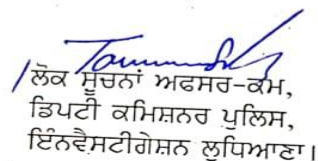 ਲੋਕ ਸੂਚਨਾਂ ਅਫਸਰ-ਕਮ,
ਡਿਪਟੀ ਕਮਿਸ਼ਨਰ ਪੁਲਿਸ,
ਇੰਨਵੈਸਟੀਗੇਸ਼ਨ ਲੁਧਿਆਣਾ।